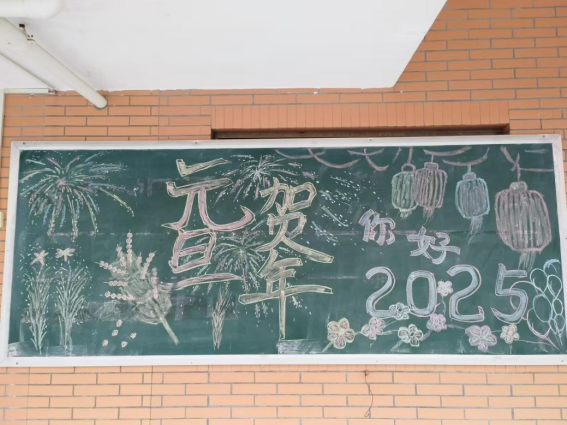 元旦
贺年
你好
2025